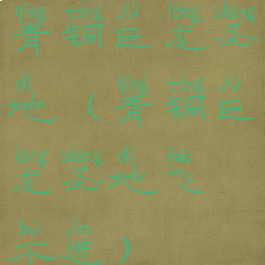 qīng tóng jù lóng shèng
青铜巨龙圣
dì qīng tóng jù
地（青铜巨
lóng shèng dì fēi
龙圣地飞
bù jìn
不进）